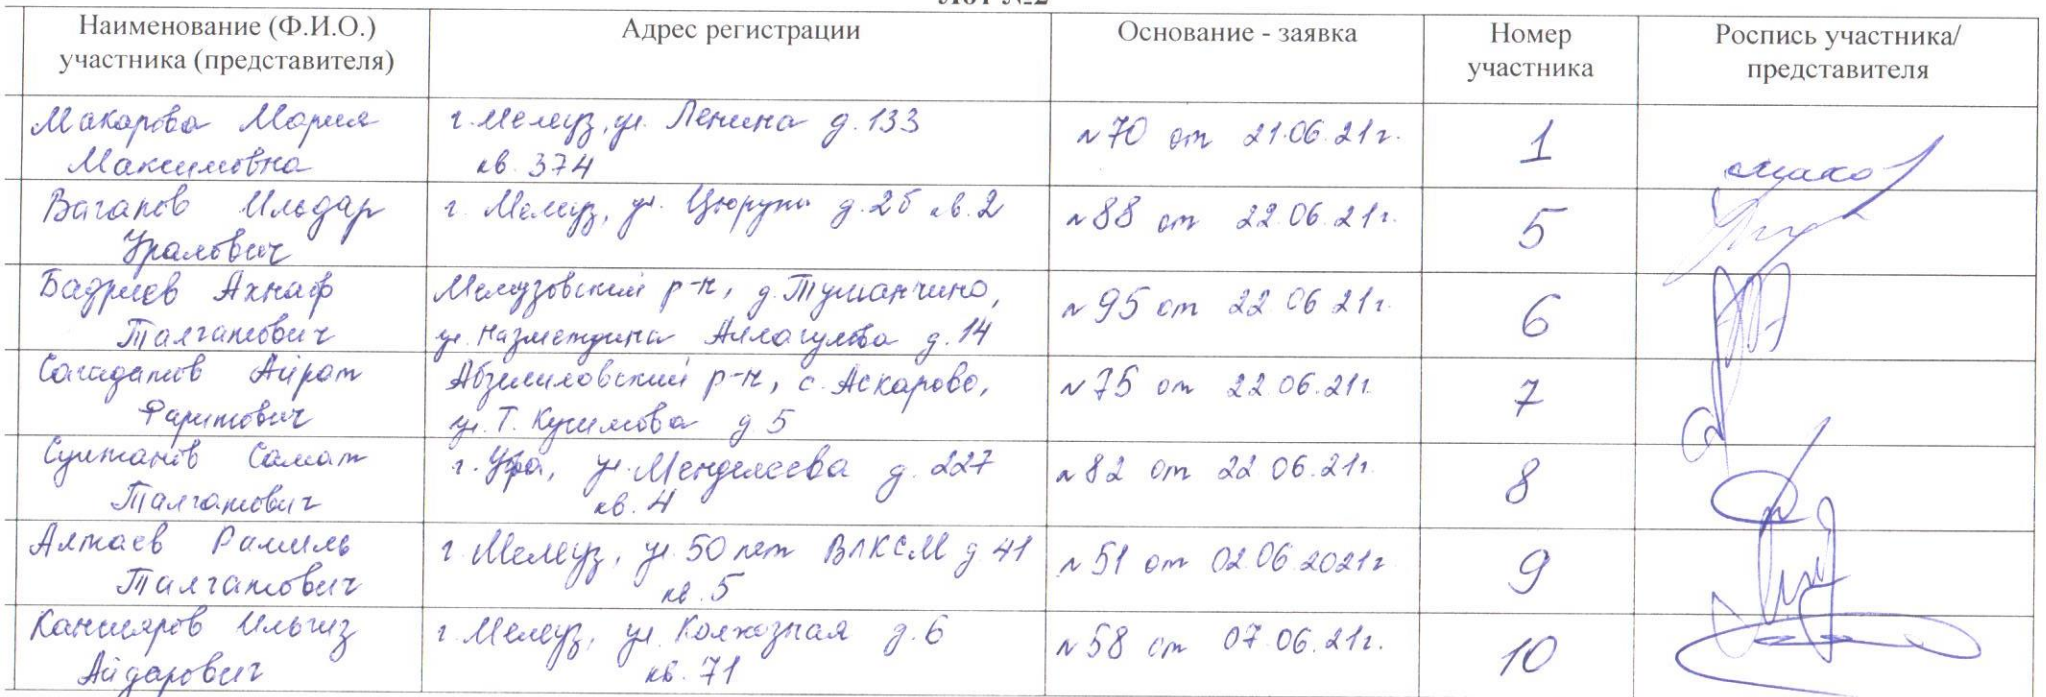 Лот №2
Наименование (Ф.И.О.)
участника (представителя)
Адрес регистрации
Основание - заявка
Номер
участника
Роспись участника/
представителя
Макарова Мария
Максимовна
г. Мелеуз, ул. Ленина д. 133
кв. 374
№70 от 21.06.21г.
1
Ваганов Ильдар
Уралович
г. Мелеуз, ул. Цюрупы д. 2б кв. 2
№88 от 22.06.21г.
5
Бадриев Ахнаф
Талгатович
Мелеузовский р-н, д. Туманчино,
ул. Назметдина Аллагулова д. 14
№95 от 22 06 21г.
6
Сагадатов Айрат
Фаритович
Абзелиловский р-н, с. Аскарово,
ул. Т. Кусимова д 5
№75 от 22.06.21г.
7
Султанов Самат
Талгатович
г. Уфа, ул. Менделеева д. 227
кв. 4
№82 от 22 06.21г.
8
Алтаев Рамиль
Талгатович
г. Мелеуз, ул. 50 лет ВЛКСМ д 41
кв. 5
№51 от 02.06.2021г
9
Ильгиз
Айдарович
г. Мелеуз, ул. Колхозная д. 6
кв. 71
№58 от 07.06.21г.
10